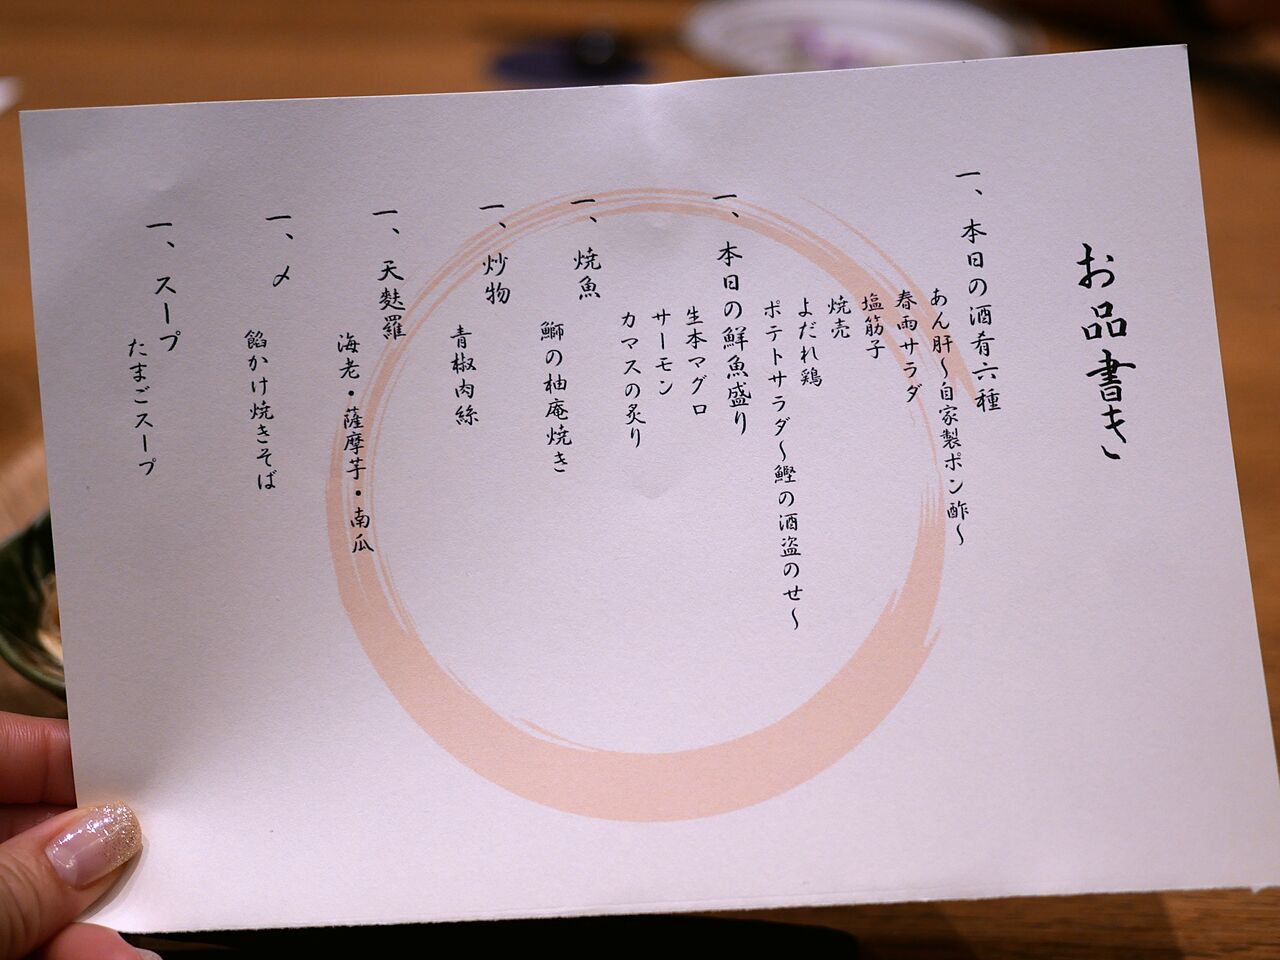 お品書き
一、本日の酒肴六種
あん肝～自家製ポン酢～
春雨サラダ
塩筋子
焼売
よだれ鶏
ポテトサラダ～鰹の酒盗のせ～
一、本日の鮮魚盛り
生本マグロ
サーモン
カマスの炙り
一、焼魚
鰤の柚庵焼き
一、炒物
青椒肉絲
一、天麩羅
海老・薩摩芋・南瓜
一、〆
餡かけ焼きそば
一、スープ
たまごスープ